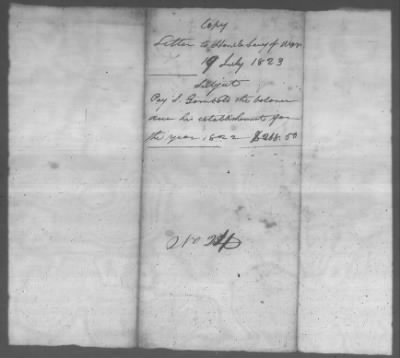 Copy
Letter to Honble Secy of War
19 July 1823
Subject
Pay S. Gambold the balance
due his establishment for
the year 1822 $268.50
No 24